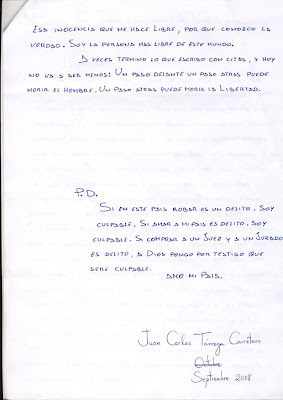 ESA INOCENCIA QUE ME HACE LIBRE, POR QUE CONOZCO LA
VERDAD. SOY LA PERSONA MAS LIBRE DE ESTE MUNDO.
A VECES TERMINO LO QUE ESCRIBO CON CITAS, Y HOY
NO VA A SER MENOS: UN PASO DELANTE UN PASO ATRAS PUEDE
MORIR EL HOMBRE. UN PASO ATRAS PUEDE MORIR LA LIBERTAD.
P.D.
SI EN ESTE PAIS ROBAR ES UN DELITO. SOY
CULPABLE. SI AMAR A MI PAIS ES DELITO. SOY
CULPABLE. SI COMPRAR A UN JUEZ Y A UN JURADO
ES DELITO, A DIOS PONGO POR TESTIGO QUE
SERE CULPABLE.
AMO MI PAIS.
Juan Carlos Tárrega Carretero
Octubre
Septiembre 2008